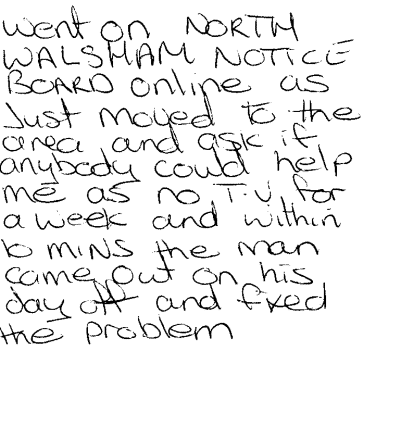 went on NORTH
WALSHAM NOTICE
BOARD online as
Just moved to the
area and ask if
anybody could help
me as no T.V for
a week and within
10 MINS the man
came out on his
day off and fixed
the problem